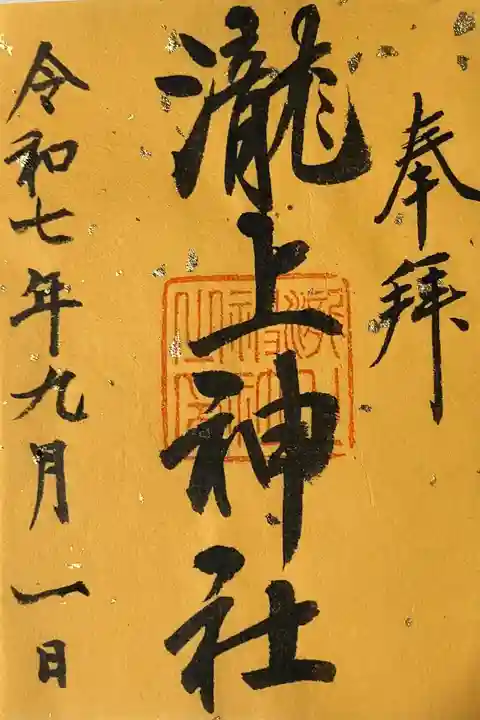 奉拝
瀧上神社
令和七年九月一日